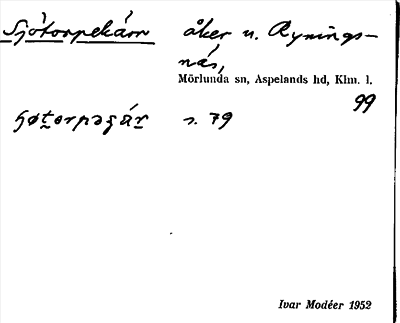 Sjötorpekärr åker u. Rynings-
näs,
Mörlunda sn, Aspelands hd, Klm. l.
99
s. 79
Ivar Modéer 1952